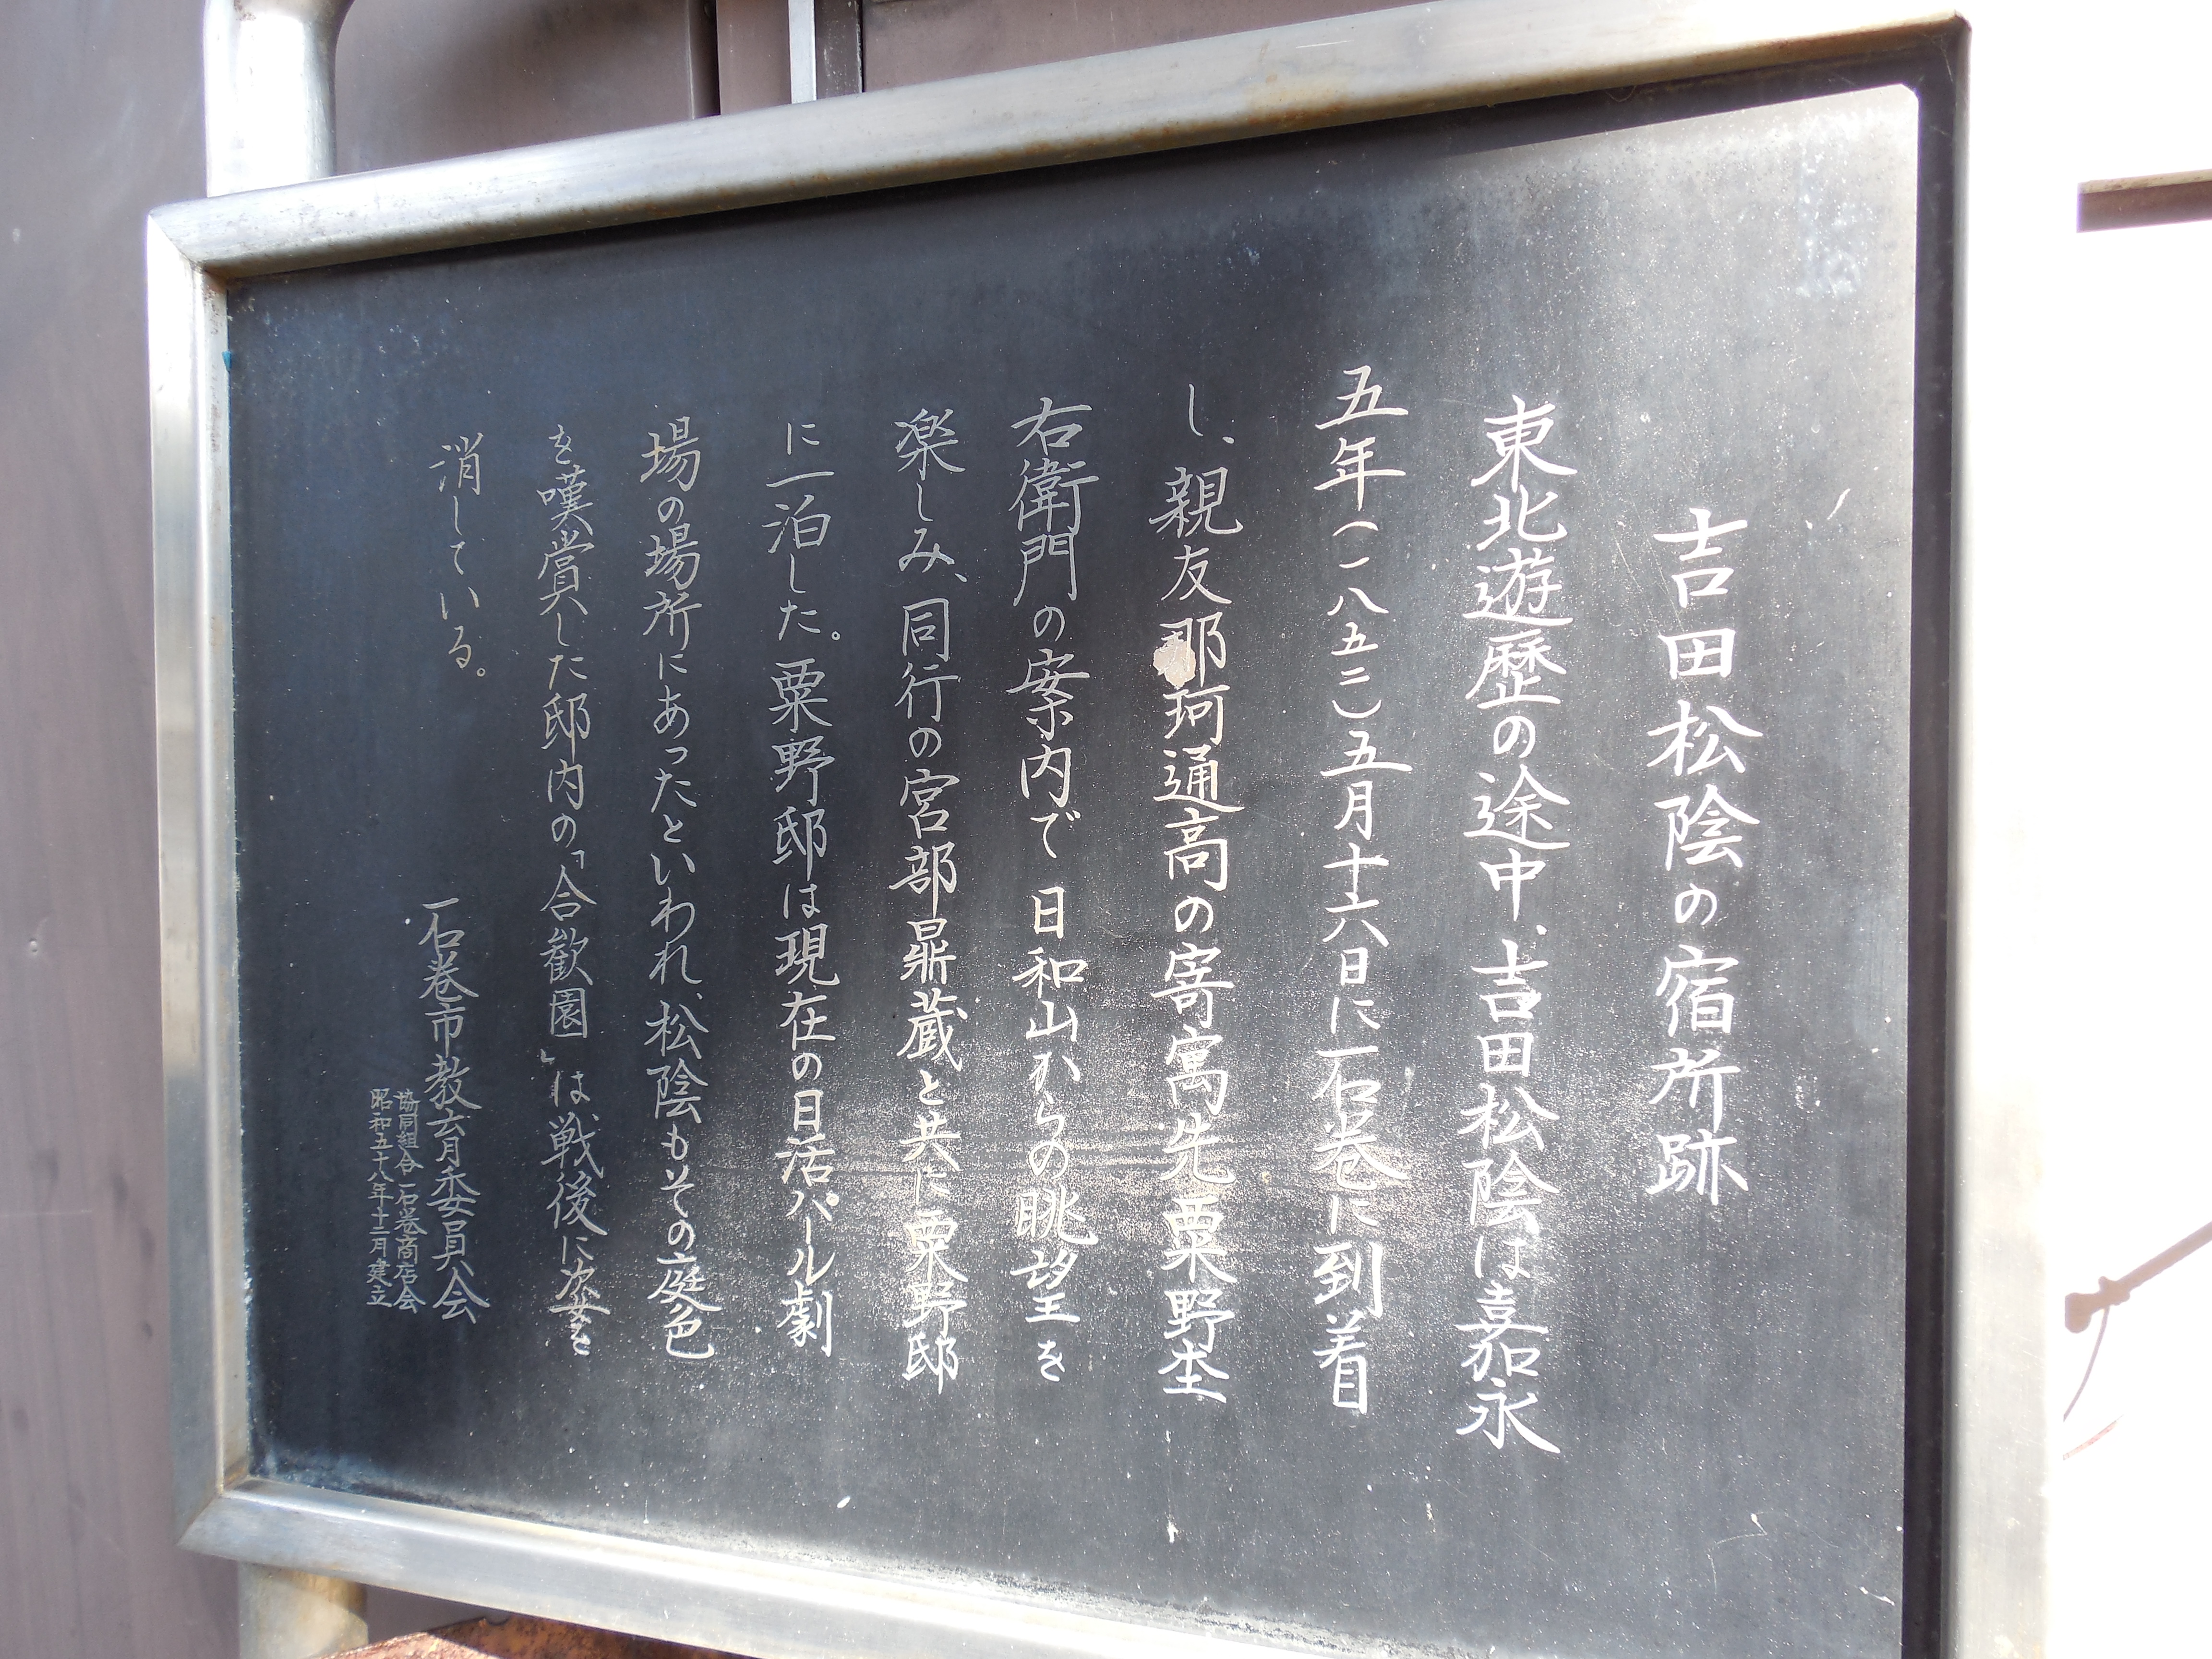 吉田松陰の宿所跡
東北遊歴の途中、吉田松陰は嘉永
五年(一八五二)五月十六日に石巻に到着
し、親友那珂通高の寄寓先粟野杢
右衛門の案内で日和山からの眺望を
楽しみ、同行の宮部鼎蔵と共に粟野邸
に一泊した。粟野邸は現在の日活パール劇
場の場所にあったといわれ、松陰もその庭色
を嘆賞した邸内の「合歓園」は戦後に姿を
消している。
石巻市教育委員会
協同組合石巻商店会
昭和五十八年十二月建立